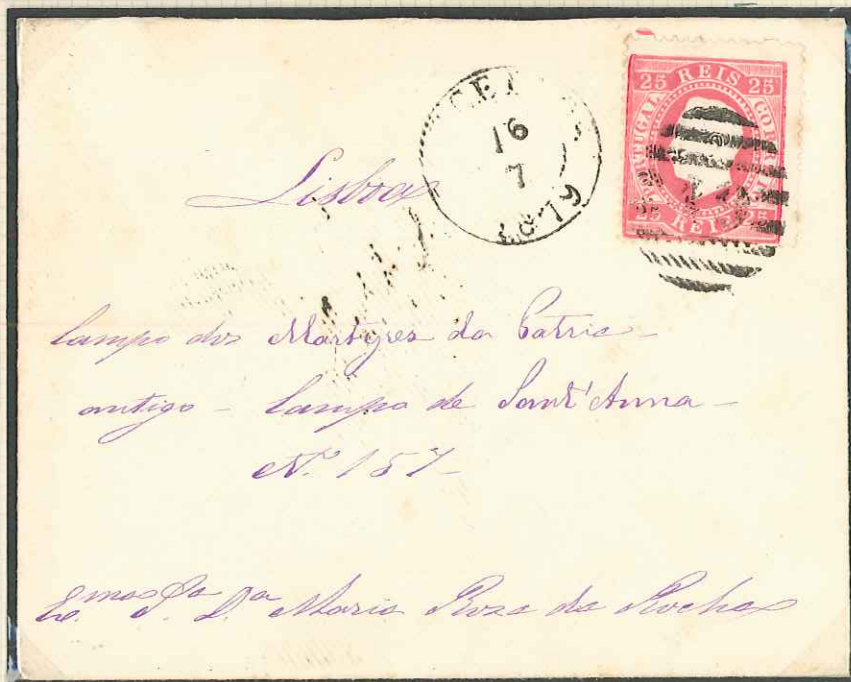 25 REIS 25
PORTUGAL
CORREIO
25 REIS 25
16
7
Lisboa
Campo dos Martyres da Patria -
antigo - Campo de Sant'Anna -
Nº 157 -
Maria Roza da Rocha